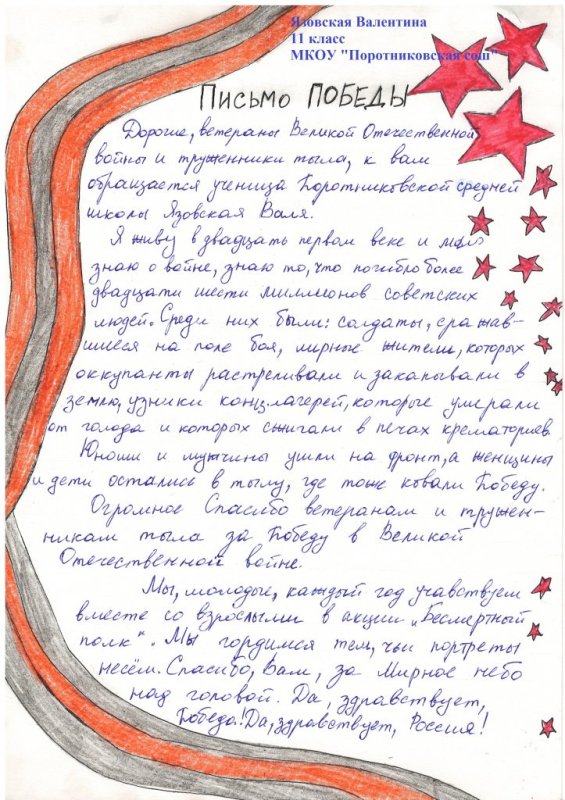 Язовская Валентина
11 класс
МКОУ "Поротниковская сош"
ПИСЬМО ПОБЕДЫ
Дорогие, ветераны Великой Отечественной
войны и труженники тыла, к вам
обращается ученица Поротниковской средней
школы Язовская Валя.
Я живу в двадцать первом веке и мало
знаю о войне, знаю то, что погибло более
двадцати шести миллионов советских
людей. Среди них были: солдаты, сражав-
шиеся на поле боя, мирные жители, которых
оккупанты растреливали и закапывали в
землю, узники концлагерей, которые умерали
от голода и которых сжигали в печах крематориев.
Юноши и мужчины ушли на фронт, а женщины
и дети остались в тылу, где тоже ковали Победу.
Огромное Спасибо ветеранам и тружен-
никам тыла за Победу в Великой
Отечественной войне.
Мы, молодые, каждый год учавствуем
вместе со взрослыми в акции „Бесмертный
полк“. Мы гордимся тем, чьи портреты
несём. Спасибо, Вам, за Мирное небо
над головой. Да, здравствует,
Победа! Да, здравствует, Россия!